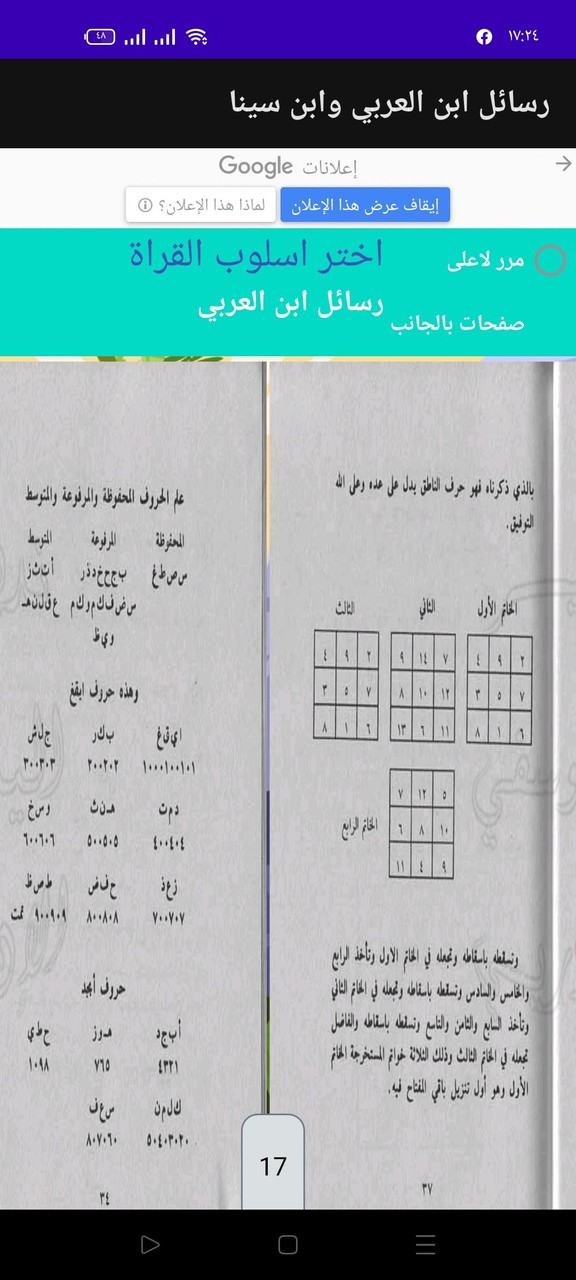 ١٧:٢٤
٤٨
رسائل ابن العربي وابن سينا
إعلانات Google
إيقاف عرض هذا الإعلان
لماذا هذا الإعلان؟
مرر لاعلى
اختر اسلوب القراة
رسائل ابن العربي
صفحات بالجانب
بالذي ذكرناه فهو حرف الناطق يدل على عده وعلى الله
التوفيق.
الخاتم الأول الثاني الثالث
٢ ٩ ٤
٧ ٥ ٣
٦ ١ ٨
٧ ١٤ ٩
١٢ ١٠ ٨
١١ ٦ ١٣
٢ ٩ ٤
٧ ٥ ٣
٦ ١ ٨
الخاتم الرابع
٥ ١٢ ٧
١٠ ٨ ٦
٩ ٤ ١١
وتسقطه باسقاطه وتجعله في الخاتم الاول وتأخذ الرابع
والخامس والسادس وتسقطه باسقاطه وتجعله في الخاتم الثاني
وتأخذ السابع والثامن والتاسع وتسقطه باسقاطه والفاضل
تجعله في الخاتم الثالث وذلك الثلاثة خواتم المستخرجة الخاتم
الأول وهو أول تنزيل باقي المفتاح فيه.
٣٧
علم الحروف المحفوظة والمرفوعة والمتوسط
المحفوظة المرفوعة المتوسط
س ص ط غ ب ج ح خ د ذ ر أ ت ث ز
س ض ف ك م و ك م ع ق ل ن هـ
و ي ظ
وهذه حروف ايقغ
ا ي ق غ ب ك ر ج ل ش
١٠٠٠١٠٠١٠١ ٢٠٠٢٠٢ ٣٠٠٣٠٣
د م ت هـ ن ث و س خ
٤٠٠٤٠٤ ٥٠٠٥٠٥ ٦٠٠٦٠٦
ز ع ذ ح ف ض ط ص ظ
٧٠٠٧٠٧ ٨٠٠٨٠٨ ٩٠٠٩٠٩ تمت
حروف أبجد
أ ب ج د هـ و ز ح ط ي
٤٣٢١ ٧٦٥ ١٠٩٨
ك ل م ن س ع ف
٥٠٤٠٣٠٢٠ ٨٠٧٠٦٠
٣٤
17